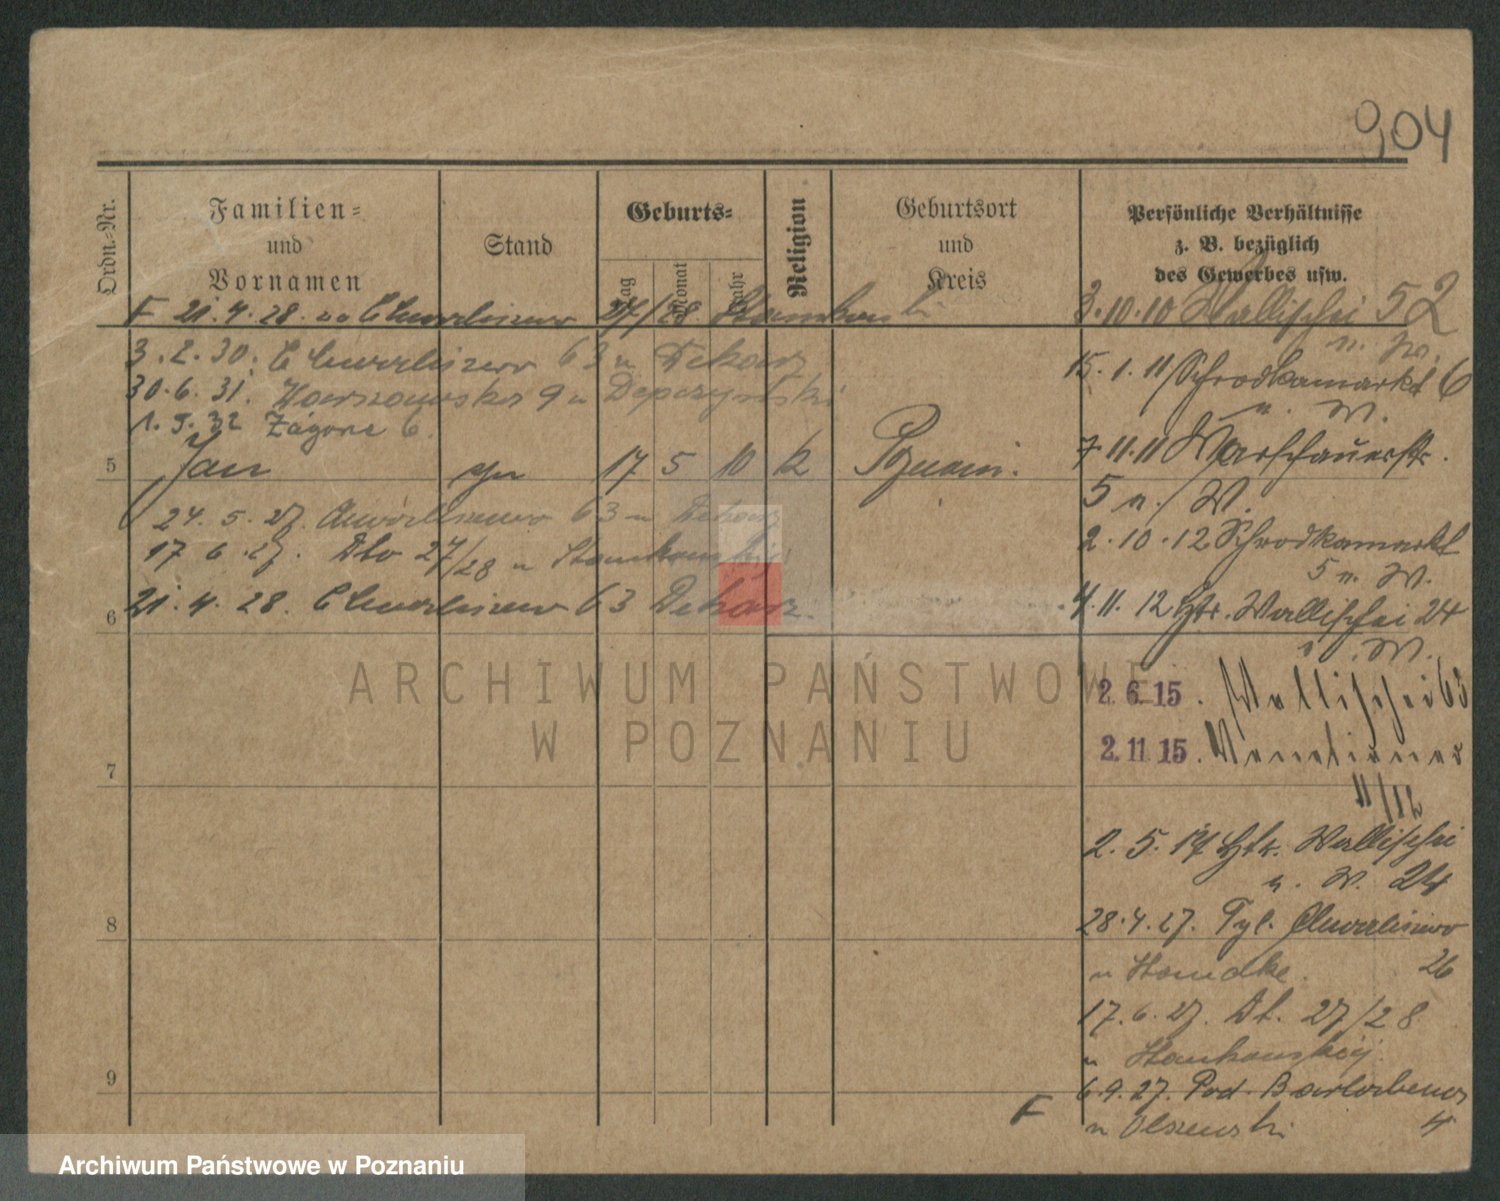 904
Ordn.-Nr.
Familien-
und
Vornamen
Stand
Geburts-
Tag
Monat
Jahr
Religion
Geburtsort
und
Kreis
Persönliche Verhältnisse
z. B. bezüglich
des Gewerbes usw.
F 21.4.28. Chwaliszewo 27/28
3.2.30. Chwaliszewo 63 u Dekarz
30.6.31. 9 u
1.9.32 Zagórze 6.
5 Jan 17 5 10 k Poznań.
24.5.27. Chwaliszewo 63 u Dekarz
17 6.27. Dto 27/28 u
6 21.4.28. Chwaliszewo 63 Dekarz.
7
8
9
3.10.10 Wallischei 52
n. W.
15.1.11 Schrodkamarkt 6
n. W.
7.11.11 Warschauerstr.
5 n. W.
2.10.12 Schrodkamarkt
5 n. W.
4.11.12 Htr. Wallischei 24
n. W.
2.6.15. Wallischei 63
2.11.15. Venetianer
11/12
2.5.17 Htr. Wallischei
n. W. 24
28.4.27. Tyl. Chwaliszewo
u 26
17.6.27. Dt. 27/28
u
6.9.27. Pod
u Olszewski 4
F
ARCHIWUM PAŃSTWOWE
W POZNANIU
Archiwum Państwowe w Poznaniu